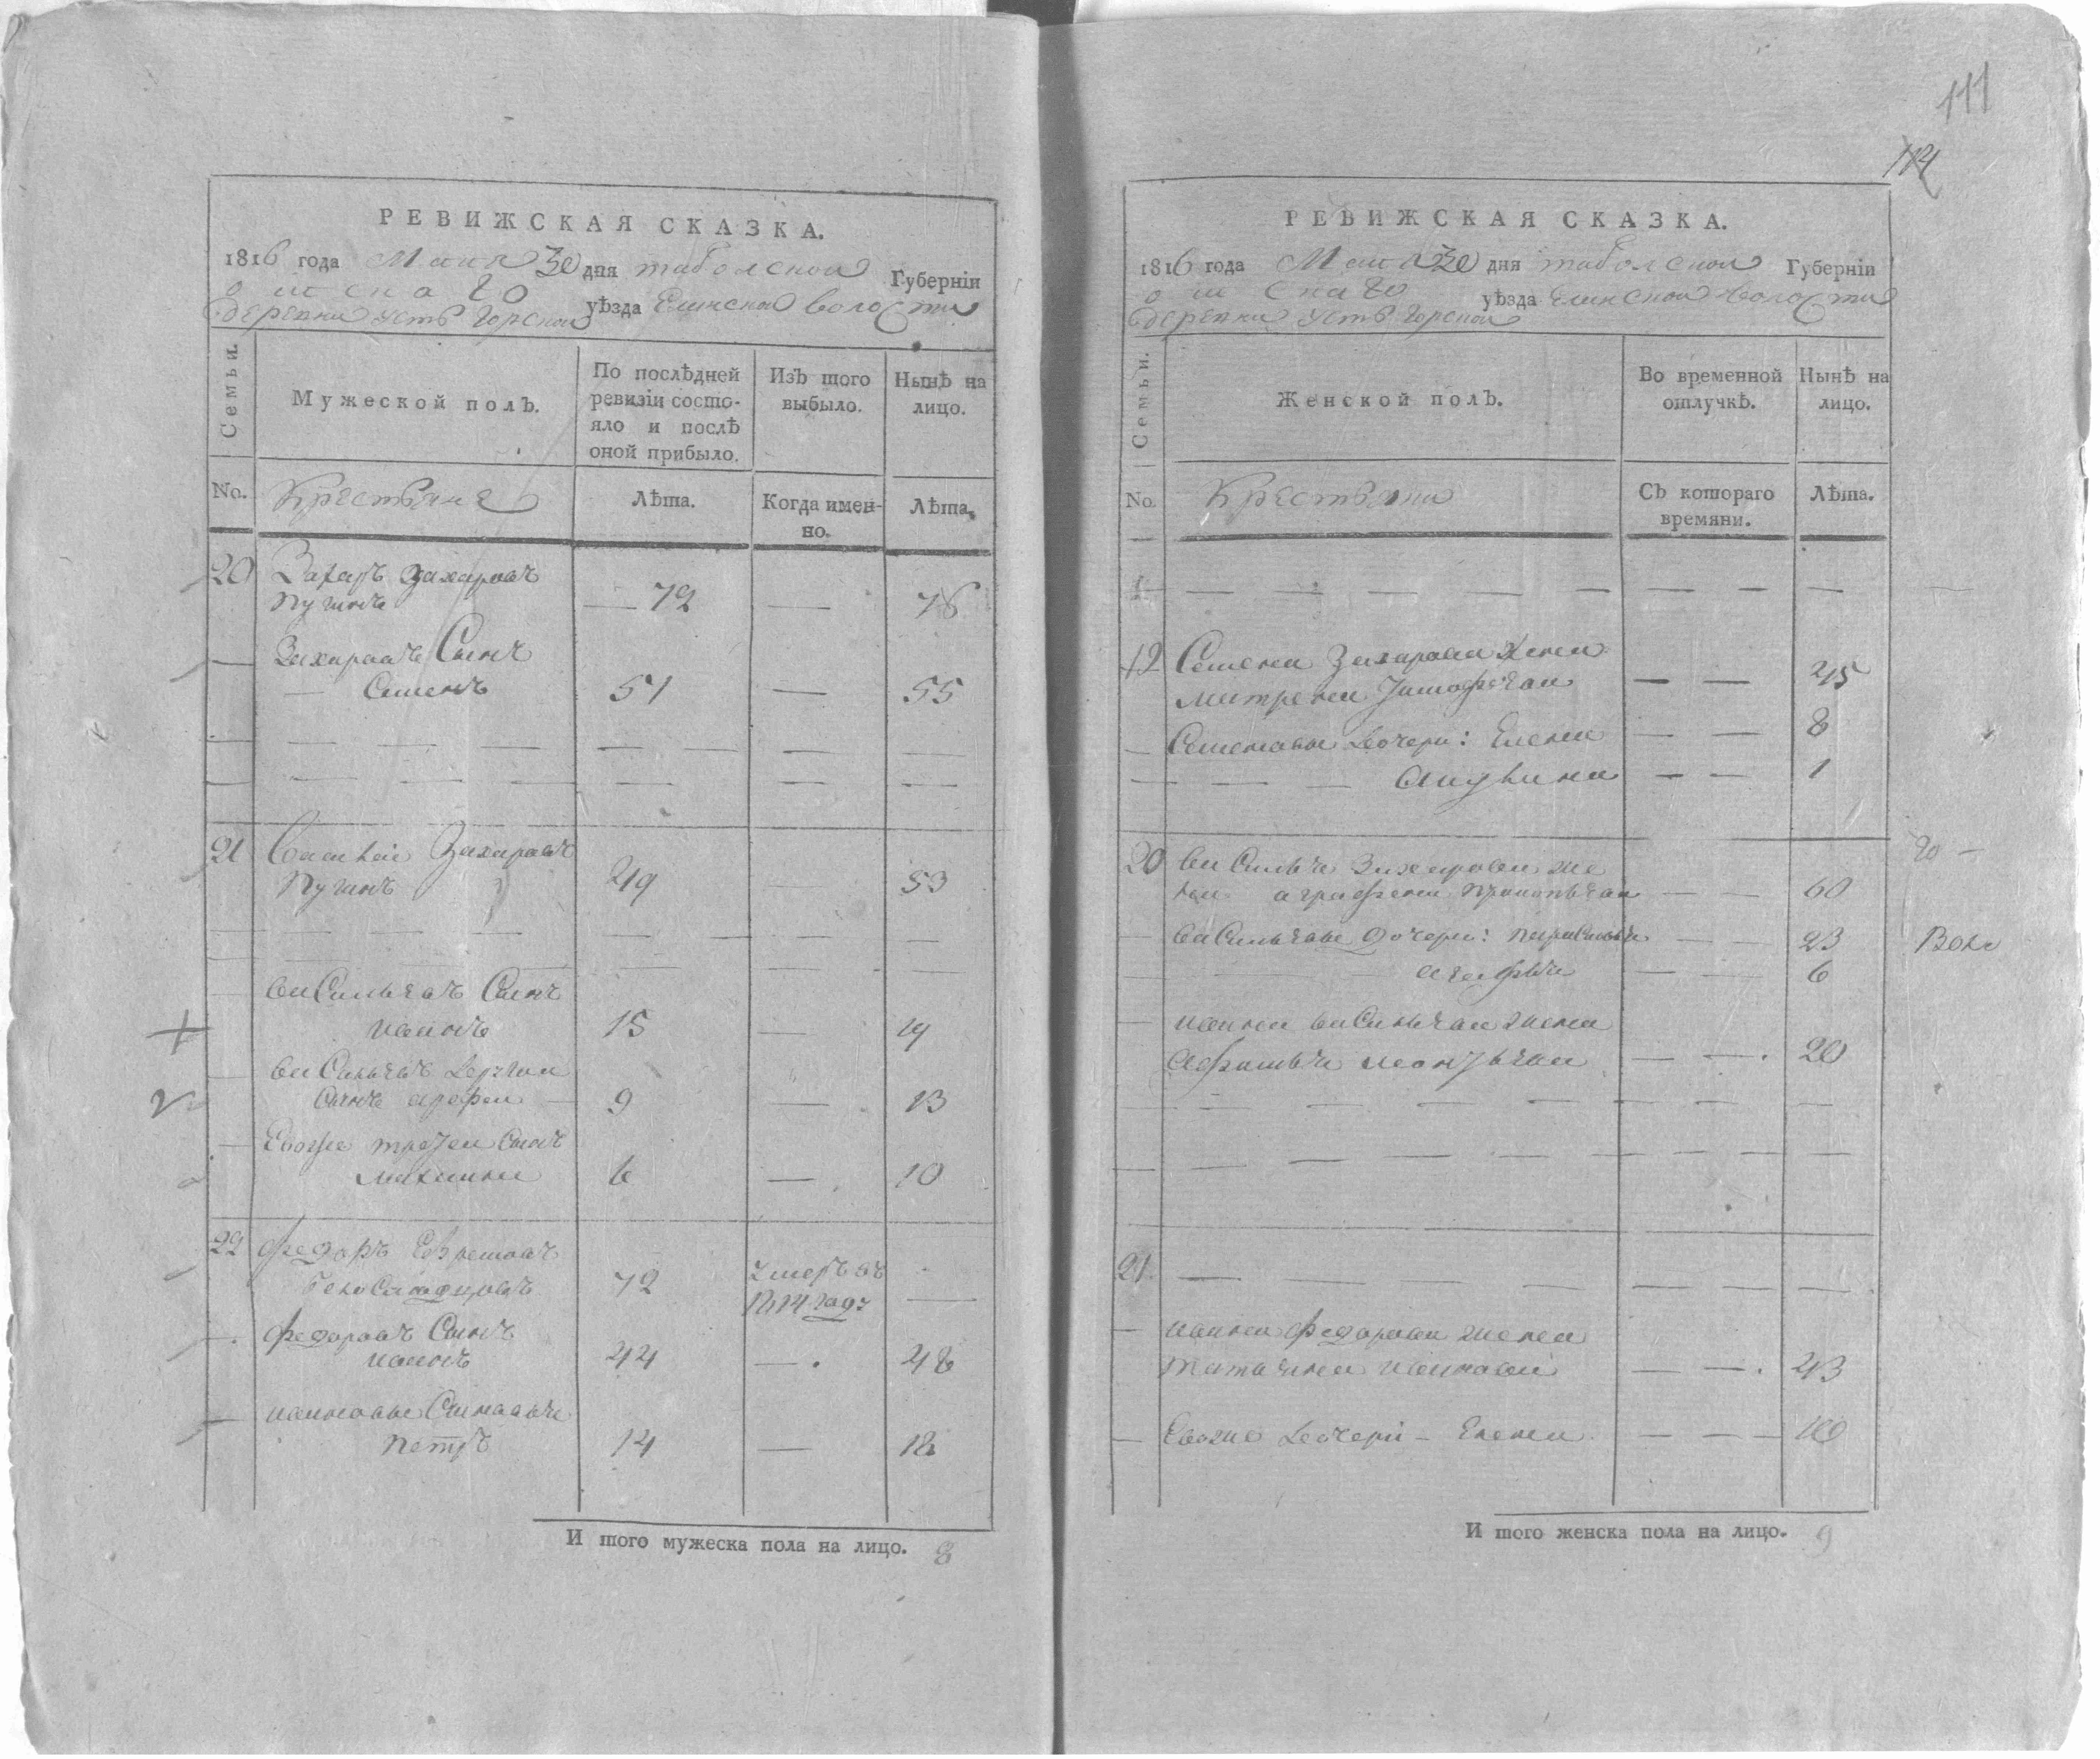 111
112
РЕВИЖСКАЯ СКАЗКА.
1816 года Маия 30 дня таболской Губерніи
омскаго уѣзда Еланской волости
деревни Усть Горской
Семьи.
Мужеской полъ.
По послѣдней ревизіи состо-
яло и послѣ
оной прибыло.
Изъ того
выбыло.
Нынѣ на
лицо.
No.
Крестьяне
Лѣта.
Когда имен-
но.
Лѣта.
20 Захаръ Захаровъ
— 72 — 76
Захаровъ Сынъ
— Семенъ 51 — 55
21 Василей Захаровъ
49 — 53
васильевъ Сынъ
иванъ 15 — 19
васильевъ
Сынъ арефеи — 9 — 13
Евоже третей Сынъ
6 — 10
22 федоръ Ефремовъ
72 умеръ въ
1814 годе —
федоровъ Сынъ
иванъ 44 — 48
ивановы Сыновья
петръ 14 — 18
И того мужеска пола на лицо. 8
РЕВИЖСКАЯ СКАЗКА.
1816 года Маия 30 дня таболской Губерніи
омскаго уѣзда Еланской волости
деревни Усть Горской
Семьи.
Женской полъ.
Во временной
отлучкѣ.
Нынѣ на
лицо.
No.
Крестьяне
Съ котораго
времяни.
Лѣта.
Семена Захарова жена
матрена — — 45
Семеновы дочери: Елена — — 8
— — — — 1
20 василья Захарова же
на аграфена — — 60
васильевы дочери: — — 23
агафья — — 6
ивана васильева жена
афимья леонтьева — — 20
21
ивана федорова жена
татьяна иванова — — 43
Евоже дочери — Елена — — — 16
И того женска пола на лицо. 9